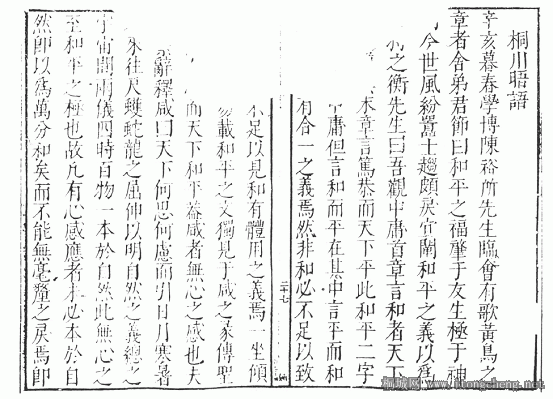 桐川晤語
辛亥暮春學博陳裕所先生臨會有歌黃鳥之
章者舍弟君節曰和平之福肇于友生極于神
今世風紛囂士趨頗戾宜闡和平之義以爲
之衡先生曰吾觀中庸首章言和者天下
末章言篤恭而天下平此和平二字
庸但言和而平在其中言平而和
有合一之義焉然非和必不足以致
不足以見和有體用之義焉一坐傾
載和平之文獨見于咸之彖傳聖
而天下和平葢感者無心之感也夫
辭釋咸曰天下何思何慮而引日月寒暑
來往尺蠖蛇龍之屈伸以明自然之義總之
宇宙間兩儀四時百物一本於自然此無心之
至和平之極也故凡有心感應者未必本於自
然卽以爲萬分和矣而不能無毫釐之戾焉卽